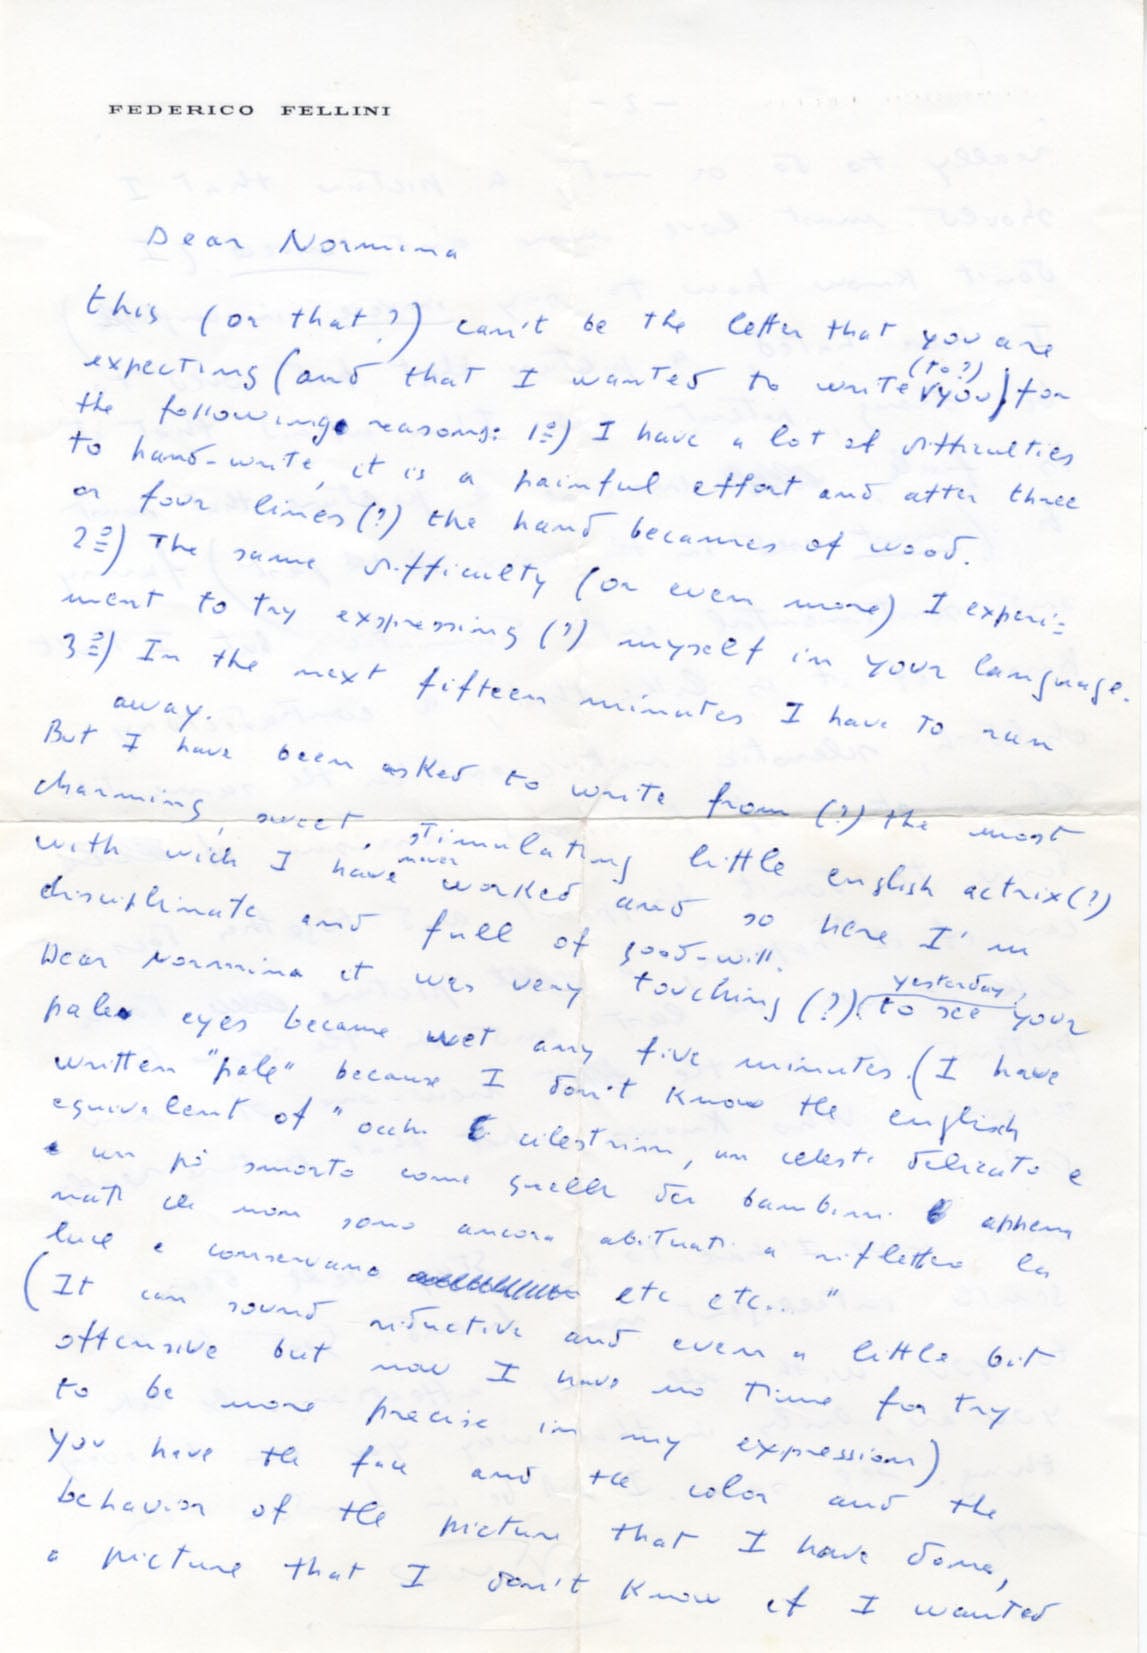 FEDERICO FELLINI
Dear Normina
this (or that?) can't be the letter that you are
expecting (and that I wanted to write (to?) you) for
the following reasons: 1º) I have a lot of difficulties
to hand-write, it is a painful effort and after three
or four lines (?) the hand becames of wood.
2º) The same difficulty (or even more) I experi=
ment to try exspressing (?) myself in your language.
3º) In the next fifteen minutes I have to run
away.
But I have been asked to write from (?) the most
charming, sweet, stimulating little english actrix (?)
with wich I have never worked and so here I'm
disciplinate and full of good-will.
Dear Normina it was very touching (?) yesterday, to see your
pale eyes became wet any five minutes. (I have
written "pale" because I don't know the english
equivalent of "occhi cilestrini, un celeste delicato e
un pò smorto come quelli dei bambini appena
nati che non sono ancora abituati a riflettere la
luce e conservano etc etc.. "
(It can sound riductive and even a little bit
offensive but now I have no time for try
to be more precise in my expression)
you have the face and the color and the
behavior of the picture that I have done,
a picture that I don't know if I wanted